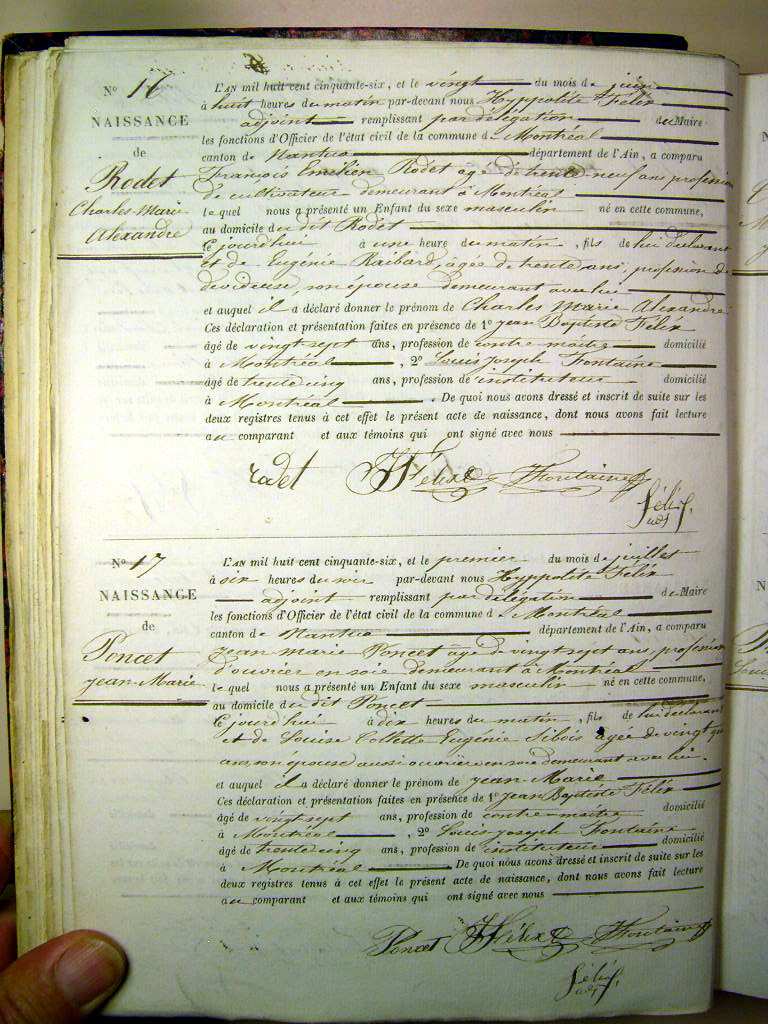 N° 16
NAISSANCE
de
Rodet
Charles Marie
Alexandre
L'AN mil huit cent cinquante-six, et le vingt du mois de juin
à huit heures du matin par-devant nous Hyppolite Félix
adjoint remplissant par délégation du Maire
les fonctions d'Officier de l'état civil de la commune de Montréal
canton de Nantua département de l'Ain, a comparu
François Emilien Rodet âgé de trente neuf ans, profession
de cultivateur demeurant à Montréal
le quel nous a présenté un Enfant du sexe masculin né en cette commune,
au domicile du dit Rodet
ce jourd'hui à une heure du matin, fils de lui déclarant
et de Eugénie Raibard, agée de trente ans, profession de
devideuse, son épouse demeurant avec lui
et auquel il a déclaré donner le prénom de Charles Marie Alexandre
Ces déclaration et présentation faites en présence de 1° Jean Baptiste Félix
âgé de vingt sept ans, profession de contre-maitre domicilié
à Montréal, 2° Louis Joseph Fontaine
âgé de trente cinq ans, profession de instituteur domicilié
à Montréal. De quoi nous avons dressé et inscrit de suite sur les
deux registres tenus à cet effet le présent acte de naissance, dont nous avons fait lecture
au comparant et aux témoins qui ont signé avec nous
rodet Félix Fontaine
Félix
adj.
N° 17
NAISSANCE
de
Poncet
Jean-Marie
L'AN mil huit cent cinquante-six, et le premier du mois de juillet
à six heures du soir par-devant nous Hyppolite Félix
adjoint remplissant par délégation du Maire
les fonctions d'Officier de l'état civil de la commune de Montréal
canton de Nantua département de l'Ain, a comparu
Jean Marie Poncet âgé de vingt sept ans, profession
d'ouvrier en soie demeurant à Montréal
le quel nous a présenté un Enfant du sexe masculin né en cette commune,
au domicile du dit Poncet
ce jourd'hui à dix heures du matin, fils de lui déclarant
et de Louise Collette Eugénie Sibois agée de vingt
ans, son épouse aussi ouvrière en soie demeurant avec lui.
et auquel il a déclaré donner le prénom de Jean-Marie
Ces déclaration et présentation faites en présence de 1° Jean Baptiste Félix
âgé de vingt sept ans, profession de contre-maitre domicilié
à Montréal, 2° Louis Joseph Fontaine
âgé de trente cinq ans, profession de instituteur domicilié
à Montréal. De quoi nous avons dressé et inscrit de suite sur les
deux registres tenus à cet effet le présent acte de naissance, dont nous avons fait lecture
au comparant et aux témoins qui ont signé avec nous
Poncet Félix Fontaine
Félix
adj.